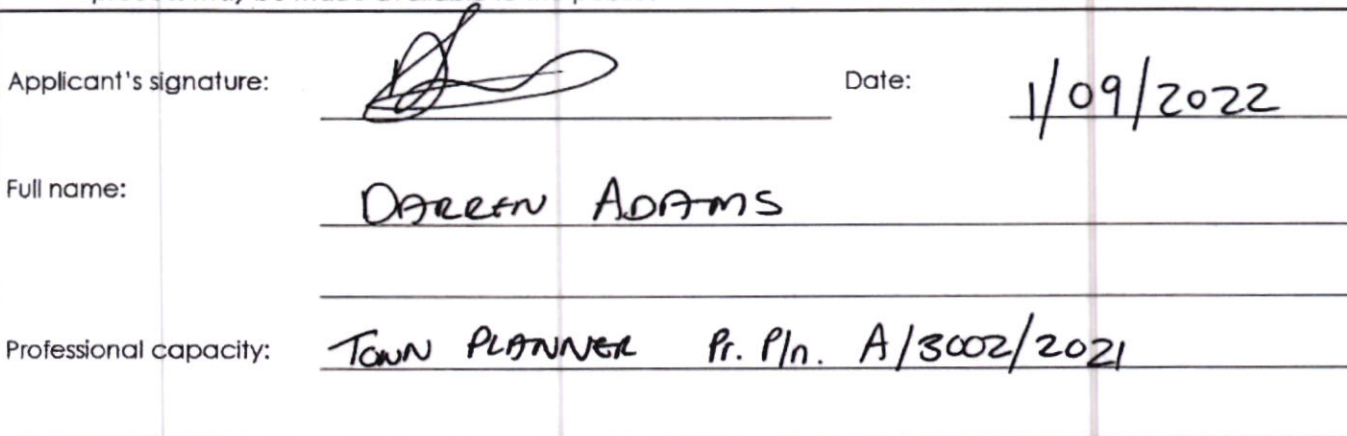 Applicant's signature: Date: 1/09/2022
Full name: DARREN ADAMS
Professional capacity: TOWN PLANNER Pr. Pln. A/3002/2021